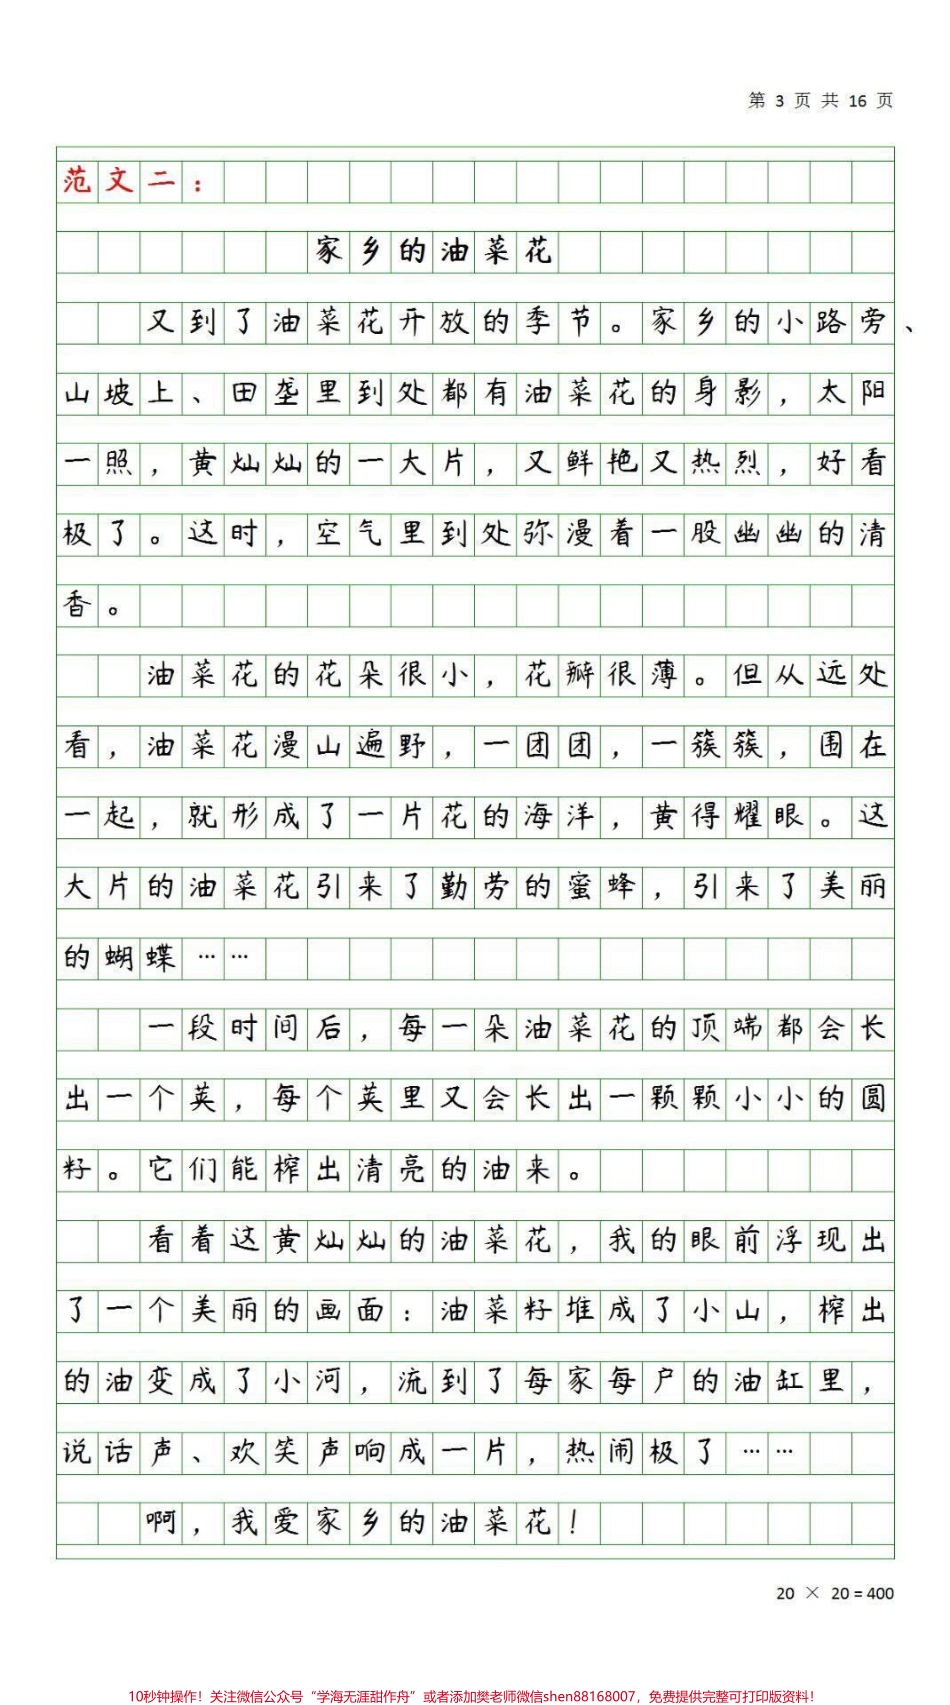 第 3 页 共 16 页
范文二：
家乡的油菜花
又到了油菜花开放的季节。家乡的小路旁、
山坡上、田垄里到处都有油菜花的身影，太阳
一照，黄灿灿的一大片，又鲜艳又热烈，好看
极了。这时，空气里到处弥漫着一股幽幽的清
香。
油菜花的花朵很小，花瓣很薄。但从远处
看，油菜花漫山遍野，一团团，一簇簇，围在
一起，就形成了一片花的海洋，黄得耀眼。这
大片的油菜花引来了勤劳的蜜蜂，引来了美丽
的蝴蝶……
一段时间后，每一朵油菜花的顶端都会长
出一个荚，每个荚里又会长出一颗颗小小的圆
籽。它们能榨出清亮的油来。
看着这黄灿灿的油菜花，我的眼前浮现出
了一个美丽的画面：油菜籽堆成了小山，榨出
的油变成了小河，流到了每家每户的油缸里，
说话声、欢笑声响成一片，热闹极了……
啊，我爱家乡的油菜花！
20 × 20 = 400
10秒钟操作！关注微信公众号“学海无涯甜作舟”或者添加樊老师微信shen88168007，免费提供完整可打印版资料！